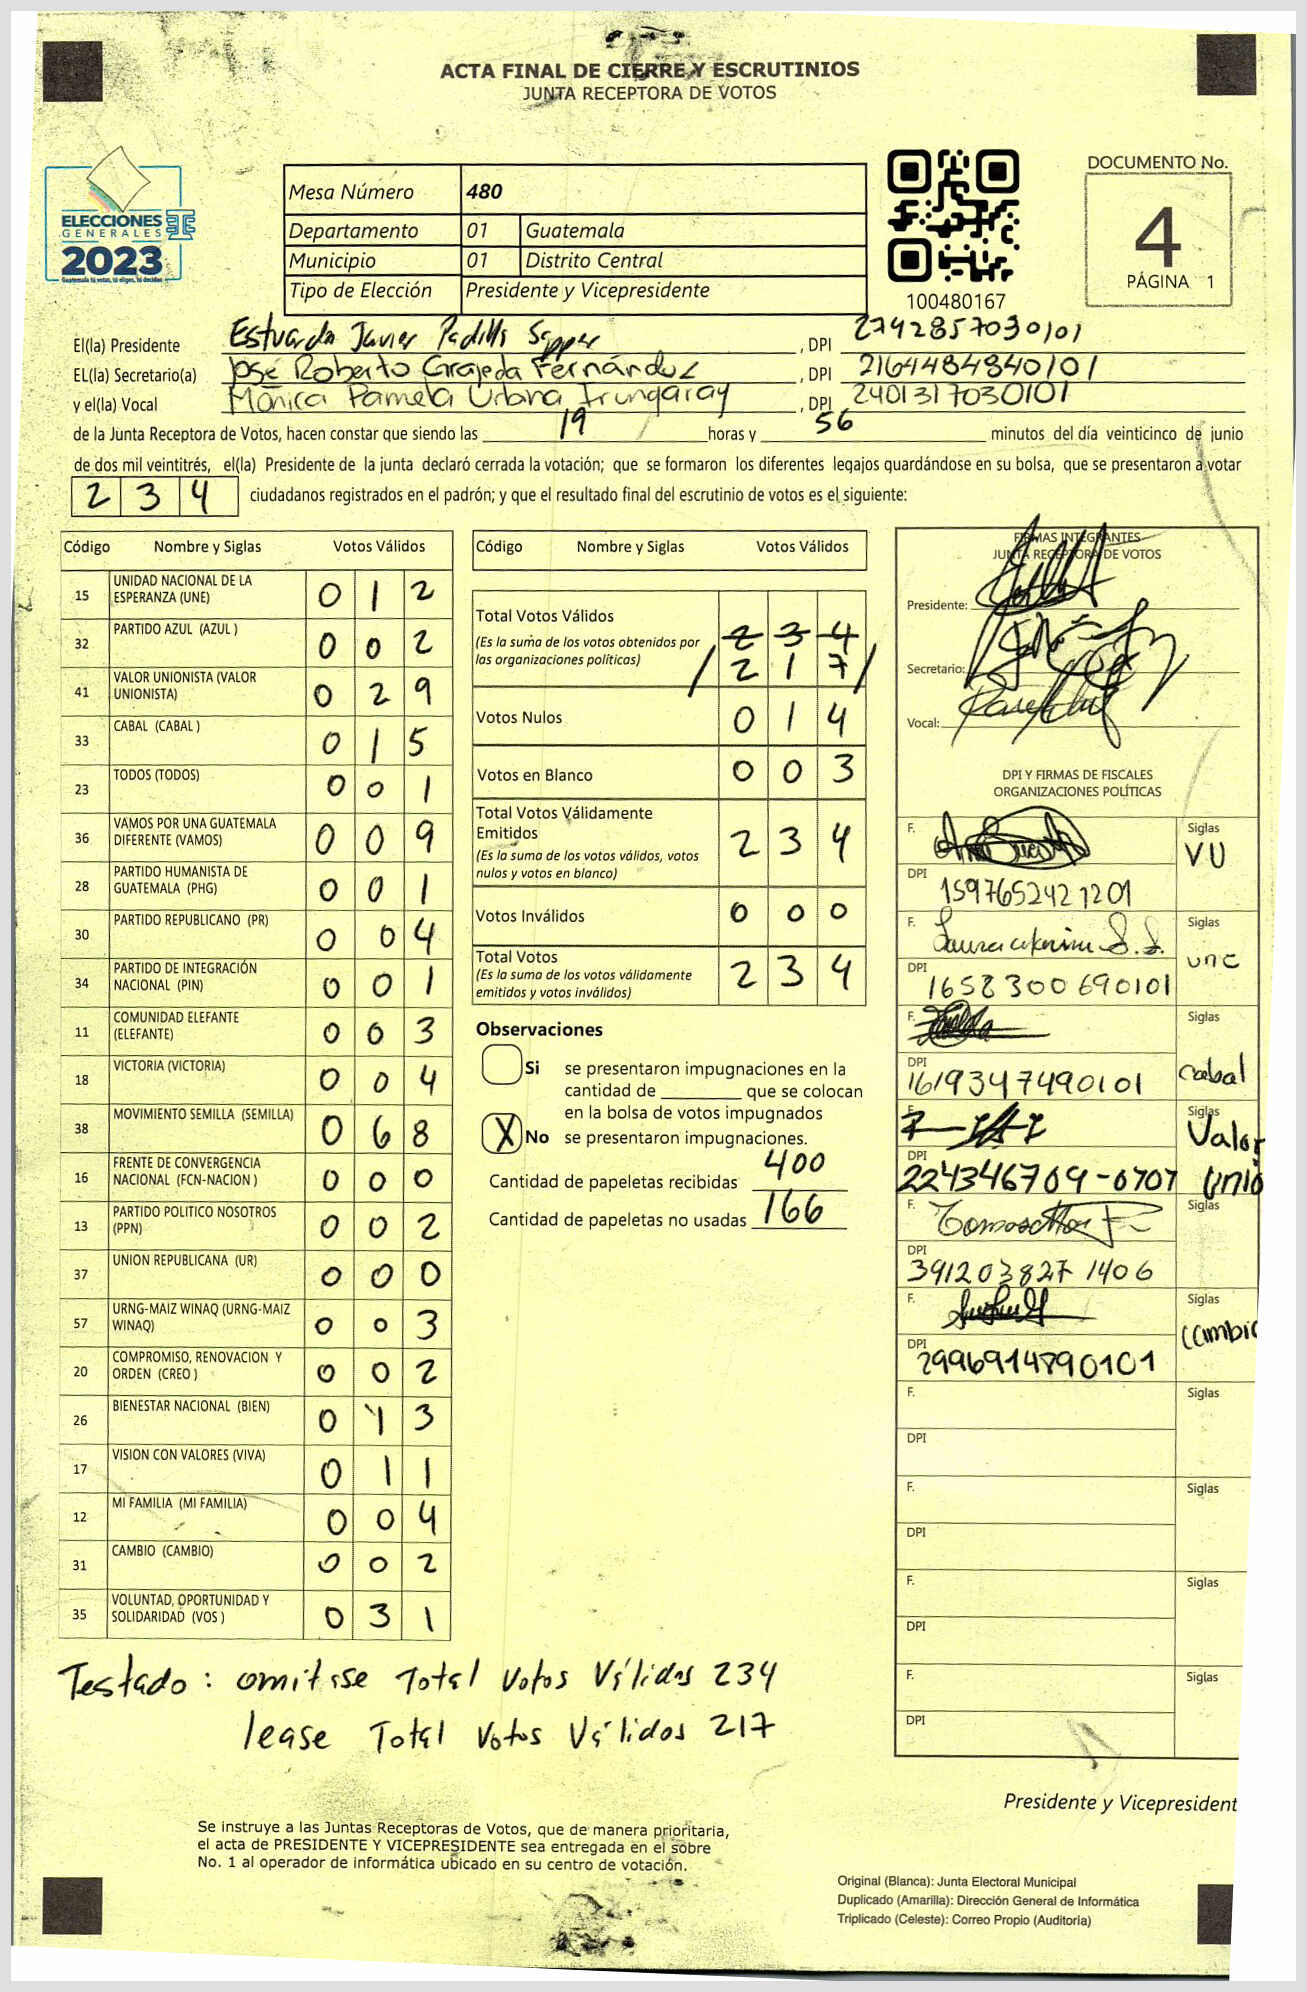 ACTA FINAL DE CIERRE Y ESCRUTINIOS
JUNTA RECEPTORA DE VOTOS
ELECCIONES
GENERALES
2023
Guatemala tú votas, tú eliges, tú decides
Mesa Número 480
Departamento 01 Guatemala
Municipio 01 Distrito Central
Tipo de Elección Presidente y Vicepresidente
100480167
DOCUMENTO No.
4
PÁGINA 1
El(la) Presidente Estuardo Javier Padilla , DPI 2742857030101
EL(la) Secretario(a) José Roberto Grajeda Fernández , DPI 2164484840101
y el(la) Vocal Mónica Pamela Urbina Irungaray , DPI 2401317030101
de la Junta Receptora de Votos, hacen constar que siendo las 19 horas y 56 minutos del día veinticinco de junio
de dos mil veintitrés, el(la) Presidente de la junta declaró cerrada la votación; que se formaron los diferentes legajos quardándose en su bolsa, que se presentaron a votar
2 3 4 ciudadanos registrados en el padrón; y que el resultado final del escrutinio de votos es el siguiente:
Código Nombre y Siglas Votos Válidos
15 UNIDAD NACIONAL DE LA ESPERANZA (UNE) 0 1 2
32 PARTIDO AZUL (AZUL ) 0 0 2
41 VALOR UNIONISTA (VALOR UNIONISTA) 0 2 9
33 CABAL (CABAL ) 0 1 5
23 TODOS (TODOS) 0 0 1
36 VAMOS POR UNA GUATEMALA DIFERENTE (VAMOS) 0 0 9
28 PARTIDO HUMANISTA DE GUATEMALA (PHG) 0 0 1
30 PARTIDO REPUBLICANO (PR) 0 0 4
34 PARTIDO DE INTEGRACIÓN NACIONAL (PIN) 0 0 1
11 COMUNIDAD ELEFANTE (ELEFANTE) 0 0 3
18 VICTORIA (VICTORIA) 0 0 4
38 MOVIMIENTO SEMILLA (SEMILLA) 0 6 8
16 FRENTE DE CONVERGENCIA NACIONAL (FCN-NACION ) 0 0 0
13 PARTIDO POLITICO NOSOTROS (PPN) 0 0 2
37 UNION REPUBLICANA (UR) 0 0 0
57 URNG-MAIZ WINAQ (URNG-MAIZ WINAQ) 0 0 3
20 COMPROMISO, RENOVACION Y ORDEN (CREO ) 0 0 2
26 BIENESTAR NACIONAL (BIEN) 0 1 3
17 VISION CON VALORES (VIVA) 0 1 1
12 MI FAMILIA (MI FAMILIA) 0 0 4
31 CAMBIO (CAMBIO) 0 0 2
35 VOLUNTAD, OPORTUNIDAD Y SOLIDARIDAD (VOS ) 0 3 1
Código Nombre y Siglas Votos Válidos
Total Votos Válidos 2 3 4
(Es la suma de los votos obtenidos por
las organizaciones políticas) / 2 1 7 /
Votos Nulos 0 1 4
Votos en Blanco 0 0 3
Total Votos Válidamente
Emitidos 2 3 4
(Es la suma de los votos válidos, votos
nulos y votos en blanco)
Votos Inválidos 0 0 0
Total Votos 2 3 4
(Es la suma de los votos válidamente
emitidos y votos inválidos)
Observaciones
Si se presentaron impugnaciones en la
cantidad de ________ que se colocan
en la bolsa de votos impugnados
X No se presentaron impugnaciones.
Cantidad de papeletas recibidas 400
Cantidad de papeletas no usadas 166
FIRMAS INTEGRANTES
JUNTA RECEPTORA DE VOTOS
Presidente:
Secretario:
Vocal:
DPI Y FIRMAS DE FISCALES
ORGANIZACIONES POLÍTICAS
F. Siglas VU
DPI 1597652421201
F. Siglas une
DPI 1658300690101
F. Siglas cabal
DPI 1619347490101
F. Siglas Valor Unio
DPI 224346709-0707
F. Siglas
DPI 3912038271406
F. Siglas cambio
DPI 2996914890101
F. Siglas
DPI
F. Siglas
DPI
F. Siglas
DPI
F. Siglas
DPI
Testado: omitase Total Votos Válidos 234
lease Total Votos Válidos 217
Presidente y Vicepresident
Se instruye a las Juntas Receptoras de Votos, que de manera prioritaria,
el acta de PRESIDENTE Y VICEPRESIDENTE sea entregada en el sobre
No. 1 al operador de informática ubicado en su centro de votación.
Original (Blanca): Junta Electoral Municipal
Duplicado (Amarilla): Dirección General de Informática
Triplicado (Celeste): Correo Propio (Auditoría)